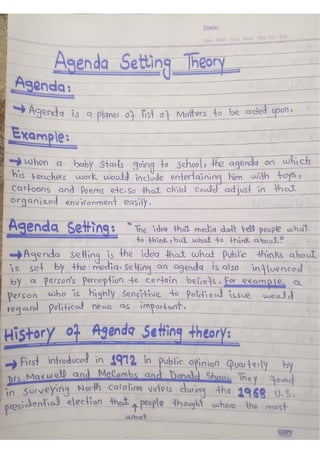 Date:
Sun Mon Tue Wed Thu Fri Sat
Agenda Setting Theory
Agenda:
→ Agenda is a planer of list of Matters to be acted upon.
Example:
→ When a baby starts going to school, the agenda on which
his teachers work would include entertaining him with toys,
cartoons and Poems etc. so that child could adjust in that
organized environment easily.
Agenda Setting: "The idea that media don't tell people what
to think, but what to think about?
→ Agenda setting is the idea that what public thinks about
is set by the media. Setting an agenda is also influenced
by a person's perception to certain beliefs. For example, a
person who is highly sensitive to Political issue would
regard political news as important.
History of Agenda Setting theory:
→ First introduced in 1972 in public opinion Quarterly by
Drs. Maxwell and McCombs and Donald Shaw. They found
in surveying North Carolina voters during the 1968 U.S.
presidential election that people thought where the most
what
COPY